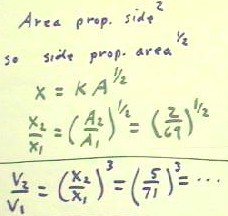 Area prop. side²
so side prop. area^1/2
x = K A^1/2
x₂/x₁ = (A₂/A₁)^1/2 = (2/69)^1/2
V₂/V₁ = (x₂/x₁)³ = (5/71)³ = ...